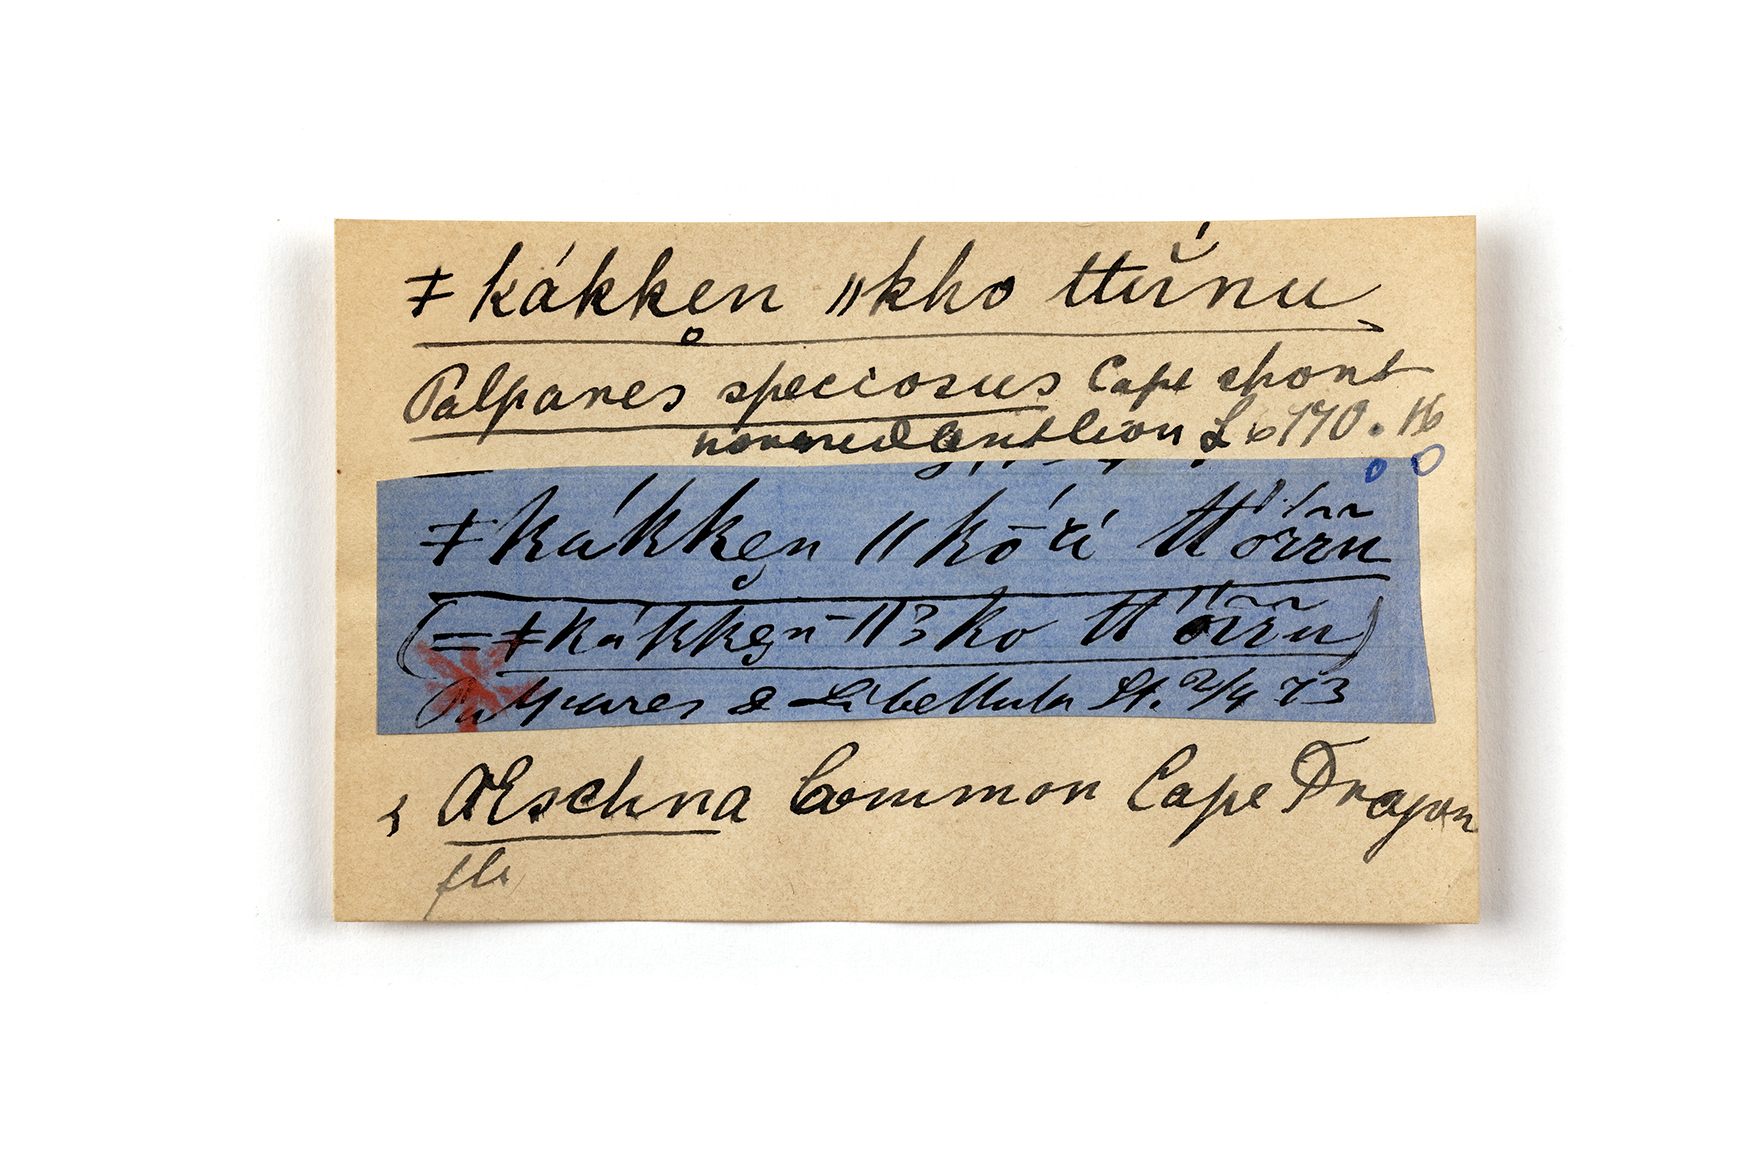 ǂkákken ǁkho ttŭ́nu
Palpares speciosus Cape short
horned antlion L 170. 16
ǂkákken ǁkō ttórru
(= ǂkákken ǁko ttórru)
Palpares & Libellula St. 2/4 73
Æschna Common Cape Dragon
fle